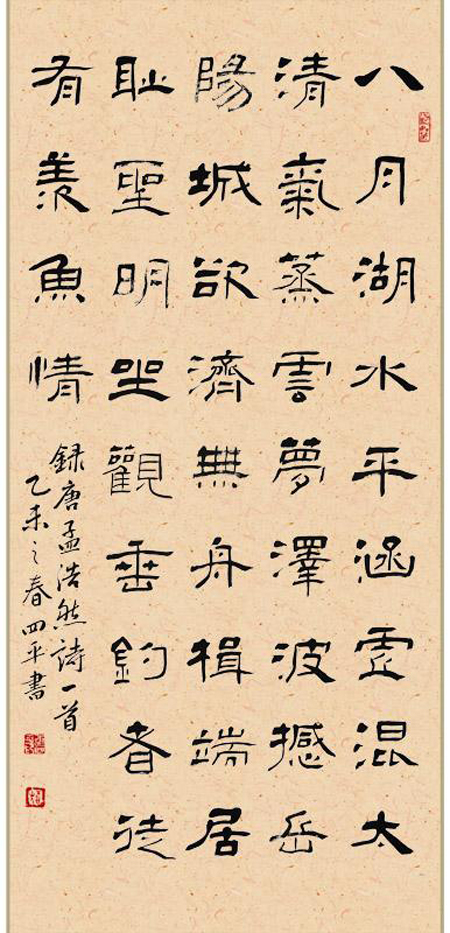 八月湖水平涵虚混太
清氣蒸雲夢澤波撼岳
陽城欲濟無舟楫端居
耻聖明坐觀垂釣者徒
有羨魚情
録唐孟浩然詩一首
乙未之春四平書